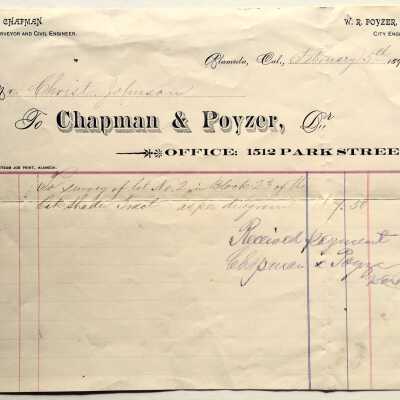 CHAPMAN
W. R. POYZER,
RVEYOR AND CIVIL ENGINEER.
CITY ENG
Alameda, Cal., February 5th 189
Christ Johnson
To Chapman & Poyzer, Dr.
OFFICE: 1512 PARK STREE
STEAM JOB PRINT, ALAMEDA.
To survey of lot No. 2 in Block 23 of the
Tract as per diagram 7.50
Received payment
Chapman & Poyze